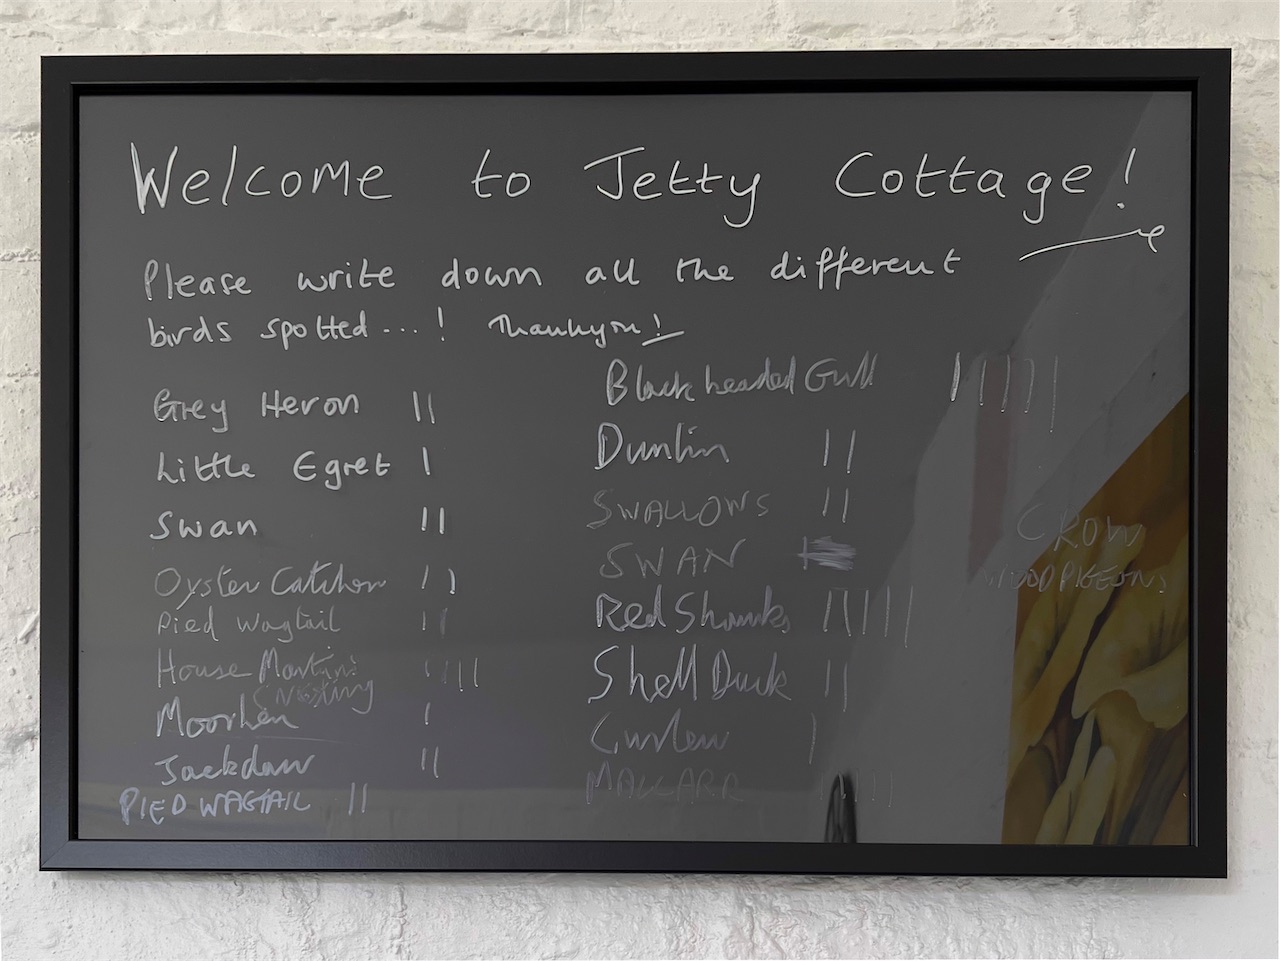 Welcome to Jetty Cottage!
Please write down all the different
birds spotted...! Thankyou!
Grey Heron ||
Little Egret |
Swan ||
Oyster Catcher ||
Pied Wagtail ||
House Martins ||||
(nesting
Moorhen |
Jackdaw ||
PIED WAGTAIL ||
Black headed Gull |||||
Dunlin ||
SWALLOWS ||
SWAN
Red Shanks |||||
Shell Duck ||
Curlew |
MALLARD |||||
CROW
WOODPIGEONS